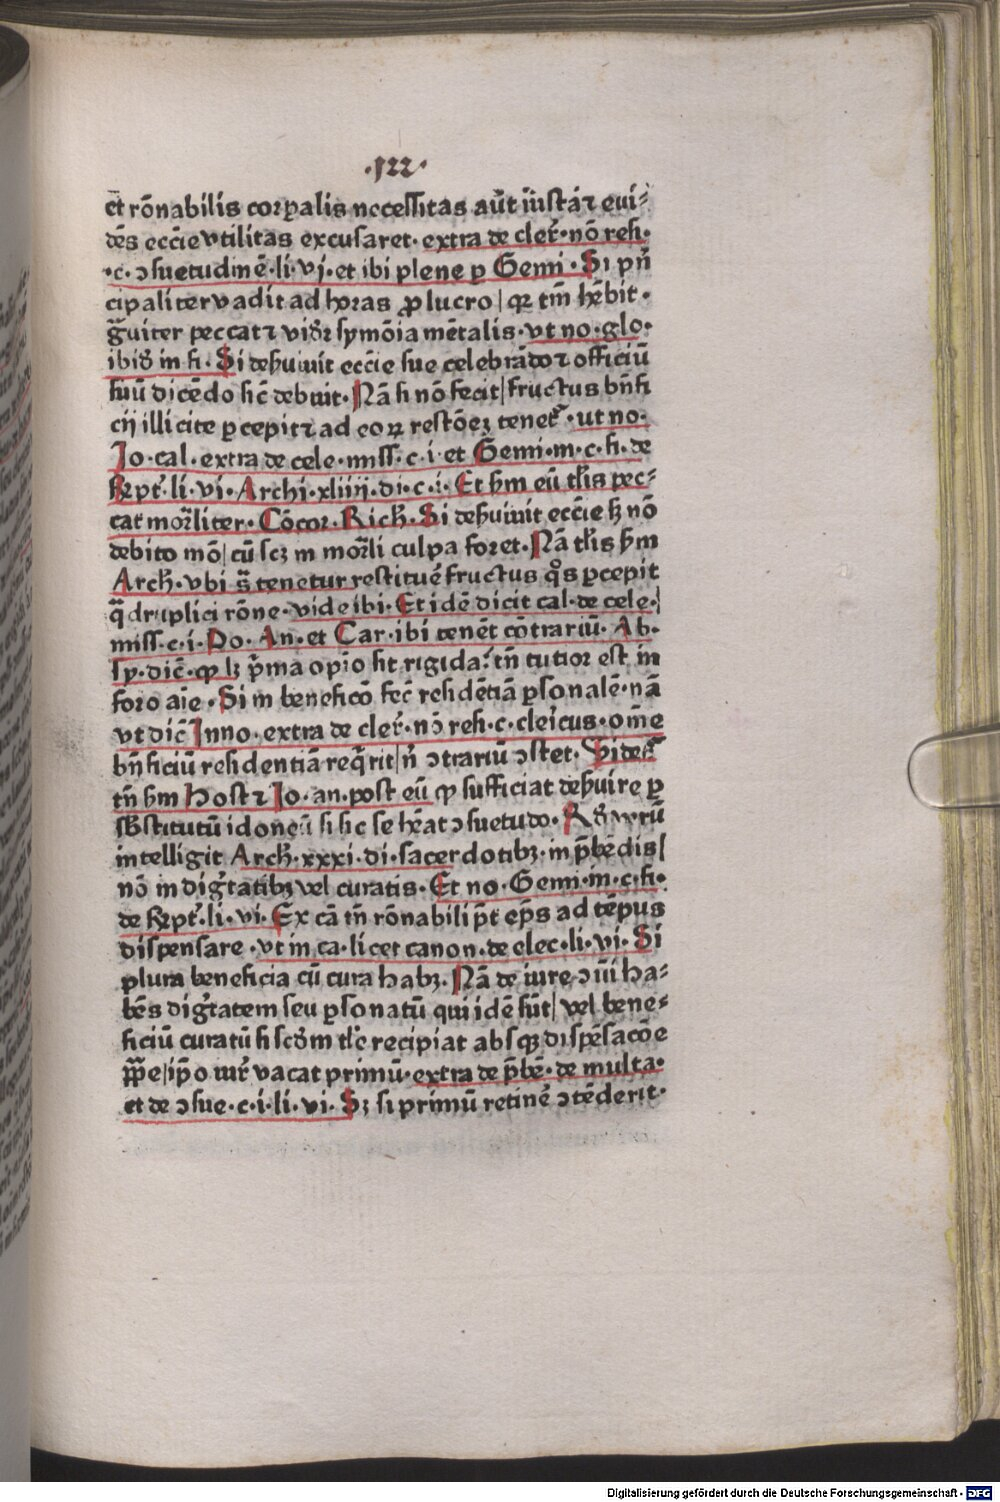 ·122·
et rōnabilis corꝑalis necessitas aūt iīustá ⁊ eui⸗
dēs eccīe vtilitas excusaret· extra de cler̄·nō resi·
·c·ↄsuetudinē·li·vj·et ibi plene ꝑ Gemi·Si pn̄
cipaliter vadit ad horas ꝓ lucro| qꝛ tm̄ hēbit·
g̃uiter peccat ⁊ vidr̄ symōia mētalis·vt no·glo·
ibid̄ in fi·Si deẜuiuit eccīe sue celebrādo ⁊ officiū
suū dicēdo sic̄ debuit·Nā si nō fecit| fructus bn̄fi
cij illicite ꝑcepit ⁊ ad eoꝝ restōeꝫ tenet᷑·ut no·
Jo·cal·extra de cele·miss·c·i·et Gemi·in·c·fi·de
rꝭpt᷑·li·vi·Archi·xliiij·di·c·i·Et ẜm eū tl̄is pec⸗
cat mor̄liter·Cōcor·Rich̄·Si deẜuiuit eccīe sꝫ nō
debito mō| cū scꝫ in mor̄li culpa foret·Nā tl̄is ẜm
Arch̄·vbi s̄ tenetur restituē fructus qͦs ꝑcepit
q̄druplici rōne·vide ibi·Et idē dicit cal·de cele·
miss·c·i·Do·An·et Car·ibi tenēt cōtrariū·Ab·
sy·dic̄·ꝙ lꝫ p̄ma opīo sit rigida·tn̄ tutior est in
foro aīe·Si in beneficō fec̄ residētiā ꝑsonalē·nā
vt dic̄ Inno·extra de cler̄·nō resi·c·cleīcus·om̄e
bn̄ficiū residentiā req̄rit| n̄ ↄtrariū ↄstet·Videt᷑
tn̄ ẜm Host ⁊ Jo·an·post eū ꝙ sufficiat deẜuire ꝑ
sb̄stitutū idoneū si sic se hēat ↄsuetudo·
intelligit Arch̄·xxxi·di·sacerdotibꝫ·in p̄bēdis|
nō in diḡtatibꝫ vel curatis·Et no·Gemi·in·c·fi·
de rꝭpt᷑·li·vi·Ex cā tn̄ rōnabili pt̄ ep̄s ad tēpus
dispensare·vt in ca·licet canon·de elec·li·vi·Si
plura beneficia cū cura habꝫ·Nā de iure ↄīī ha⸗
bēs diḡtatem seu ꝑsonatū qui idē sūt| vel bene⸗
ficiū curatū si scd̄m tl̄e recipiat absqꝫ dispēsacōe
pp̄e| ip̄o iur̄ vacat primū·extra de p̄bē·de multa·
et de ↄsue·c·i·li·vi·Sꝫ si primū retinē ↄtēderit·
Digitalisierung gefördert durch die Deutsche Forschungsgemeinschaft · DFG